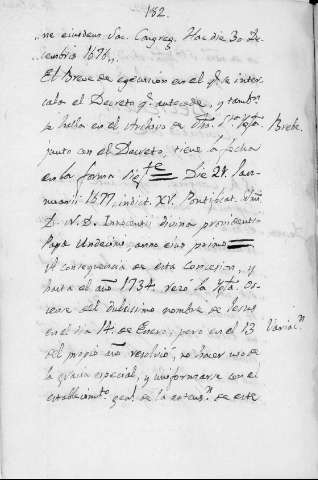 182.
ne eiusdem Sac. Congreg. Hac die 30 De-
cembris 1676.,,
El Breve de egecucion en el q.e se inter-
cala el Decreto q.e antecede, y tamb.n
se halla en el Archivo de Dha. S.ta Ygl.a
Breve.
junto con el Decreto, tiene la fecha
en la forma sig.te Die 27. Ian-
nuarii 1677, indict. XV. Pontificat. SSmi.
D. N. D. Innocentii divina providentia
Papæ Undecimi, anno eius primo
A consequencia de esta Concesion, y
hasta el año 1734. rezó la Ygl.a Os-
cense del dulcisimo nombre de Jesus
en el dia 14. de Enero; pero en el 13
Variac.n
del propio año resolvió, no hacer uso de
la gracia especial, y uniformarse con el
establecim.to gral. de la de este